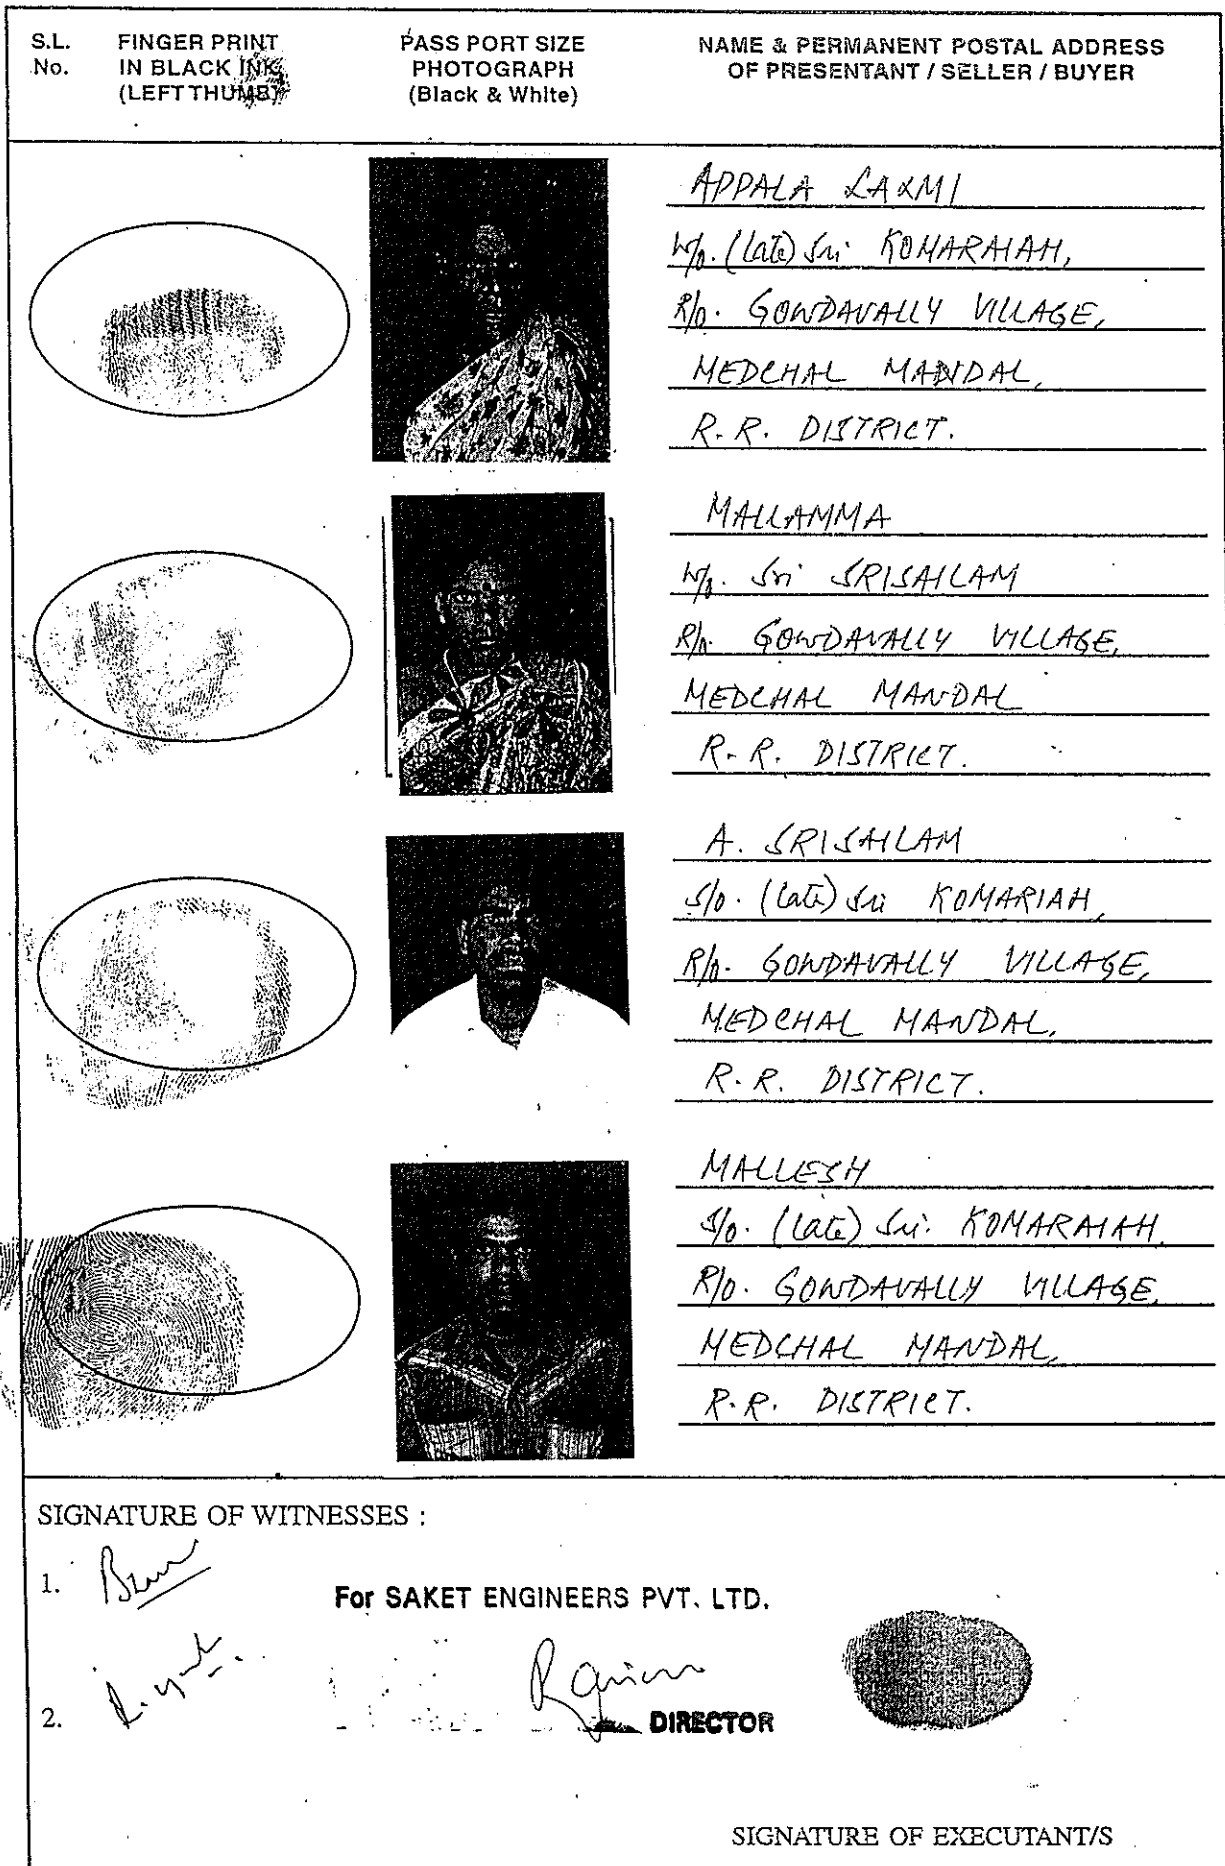 S.L. No.
FINGER PRINT IN BLACK INK (LEFT THUMB)
PASS PORT SIZE PHOTOGRAPH (Black & White)
NAME & PERMANENT POSTAL ADDRESS OF PRESENTANT / SELLER / BUYER
APPALA LAXMI
W/o. (Late) Sri KOMARAIAH,
R/o. GOWDAVALLY VILLAGE,
MEDCHAL MANDAL,
R.R. DISTRICT.
MALLAMMA
W/o. Sri SRISAILAM
R/o. GOWDAVALLY VILLAGE,
MEDCHAL MANDAL
R.R. DISTRICT.
A. SRISAILAM
S/o. (Late) Sri KOMARIAH,
R/o. GOWDAVALLY VILLAGE,
MEDCHAL MANDAL,
R.R. DISTRICT.
MALLESH
S/o. (Late) Sri. KOMARAIAH.
R/o. GOWDAVALLY VILLAGE,
MEDCHAL MANDAL,
R.R. DISTRICT.
SIGNATURE OF WITNESSES :
1.
For SAKET ENGINEERS PVT. LTD.
2.
DIRECTOR
SIGNATURE OF EXECUTANT/S